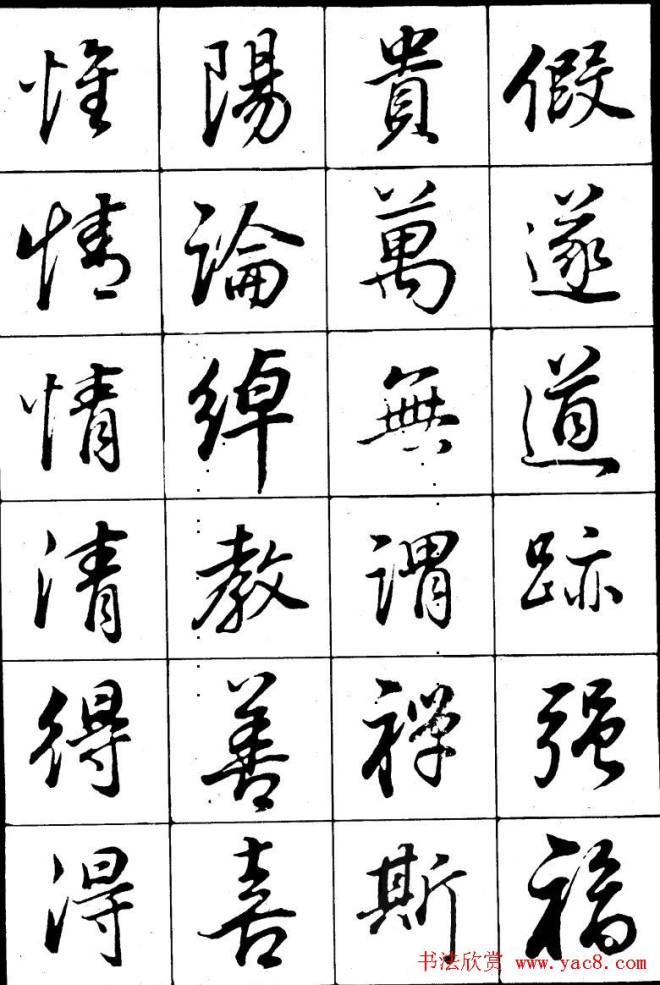 假遂道跡强福
貴萬無謂禪斯
陽論綽教善喜
惟情情清得得
书法欣赏 www.yac8.com